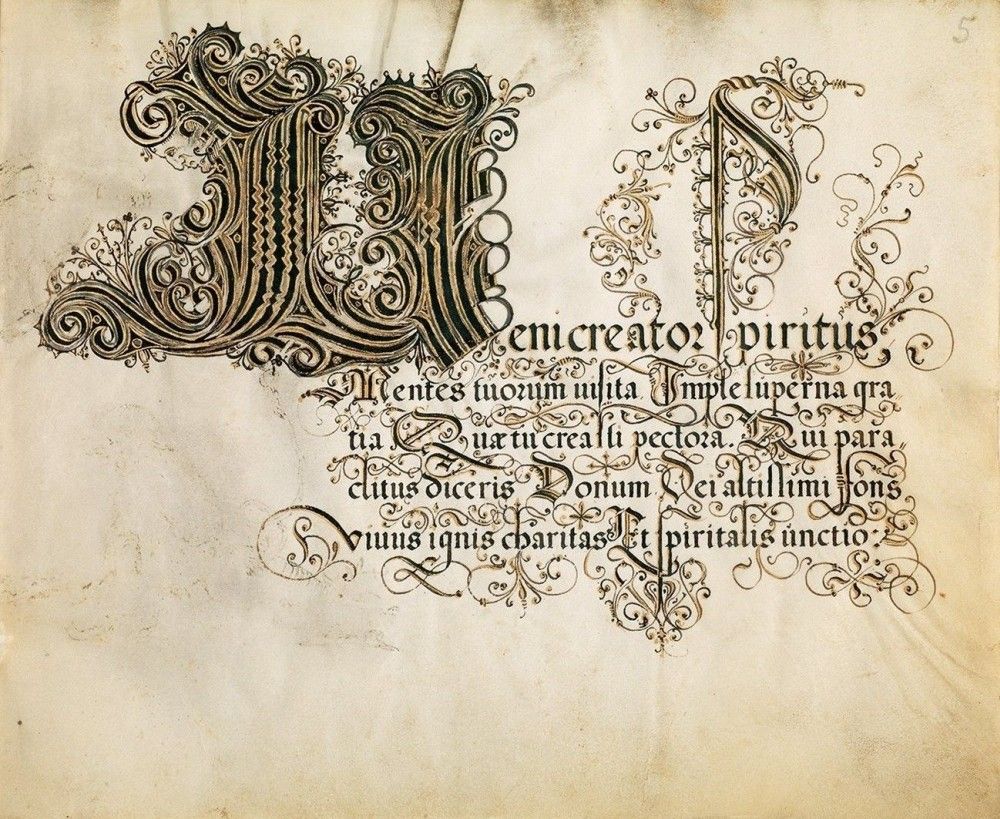 5
Veni creator Spiritus,
Mentes tuorum uisita Imple superna gra
tia Quæ tu creasti pectora. Qui para,
clitus diceris Donum Dei altissimi fons
Viuus ignis charitas Et spiritalis unctio: